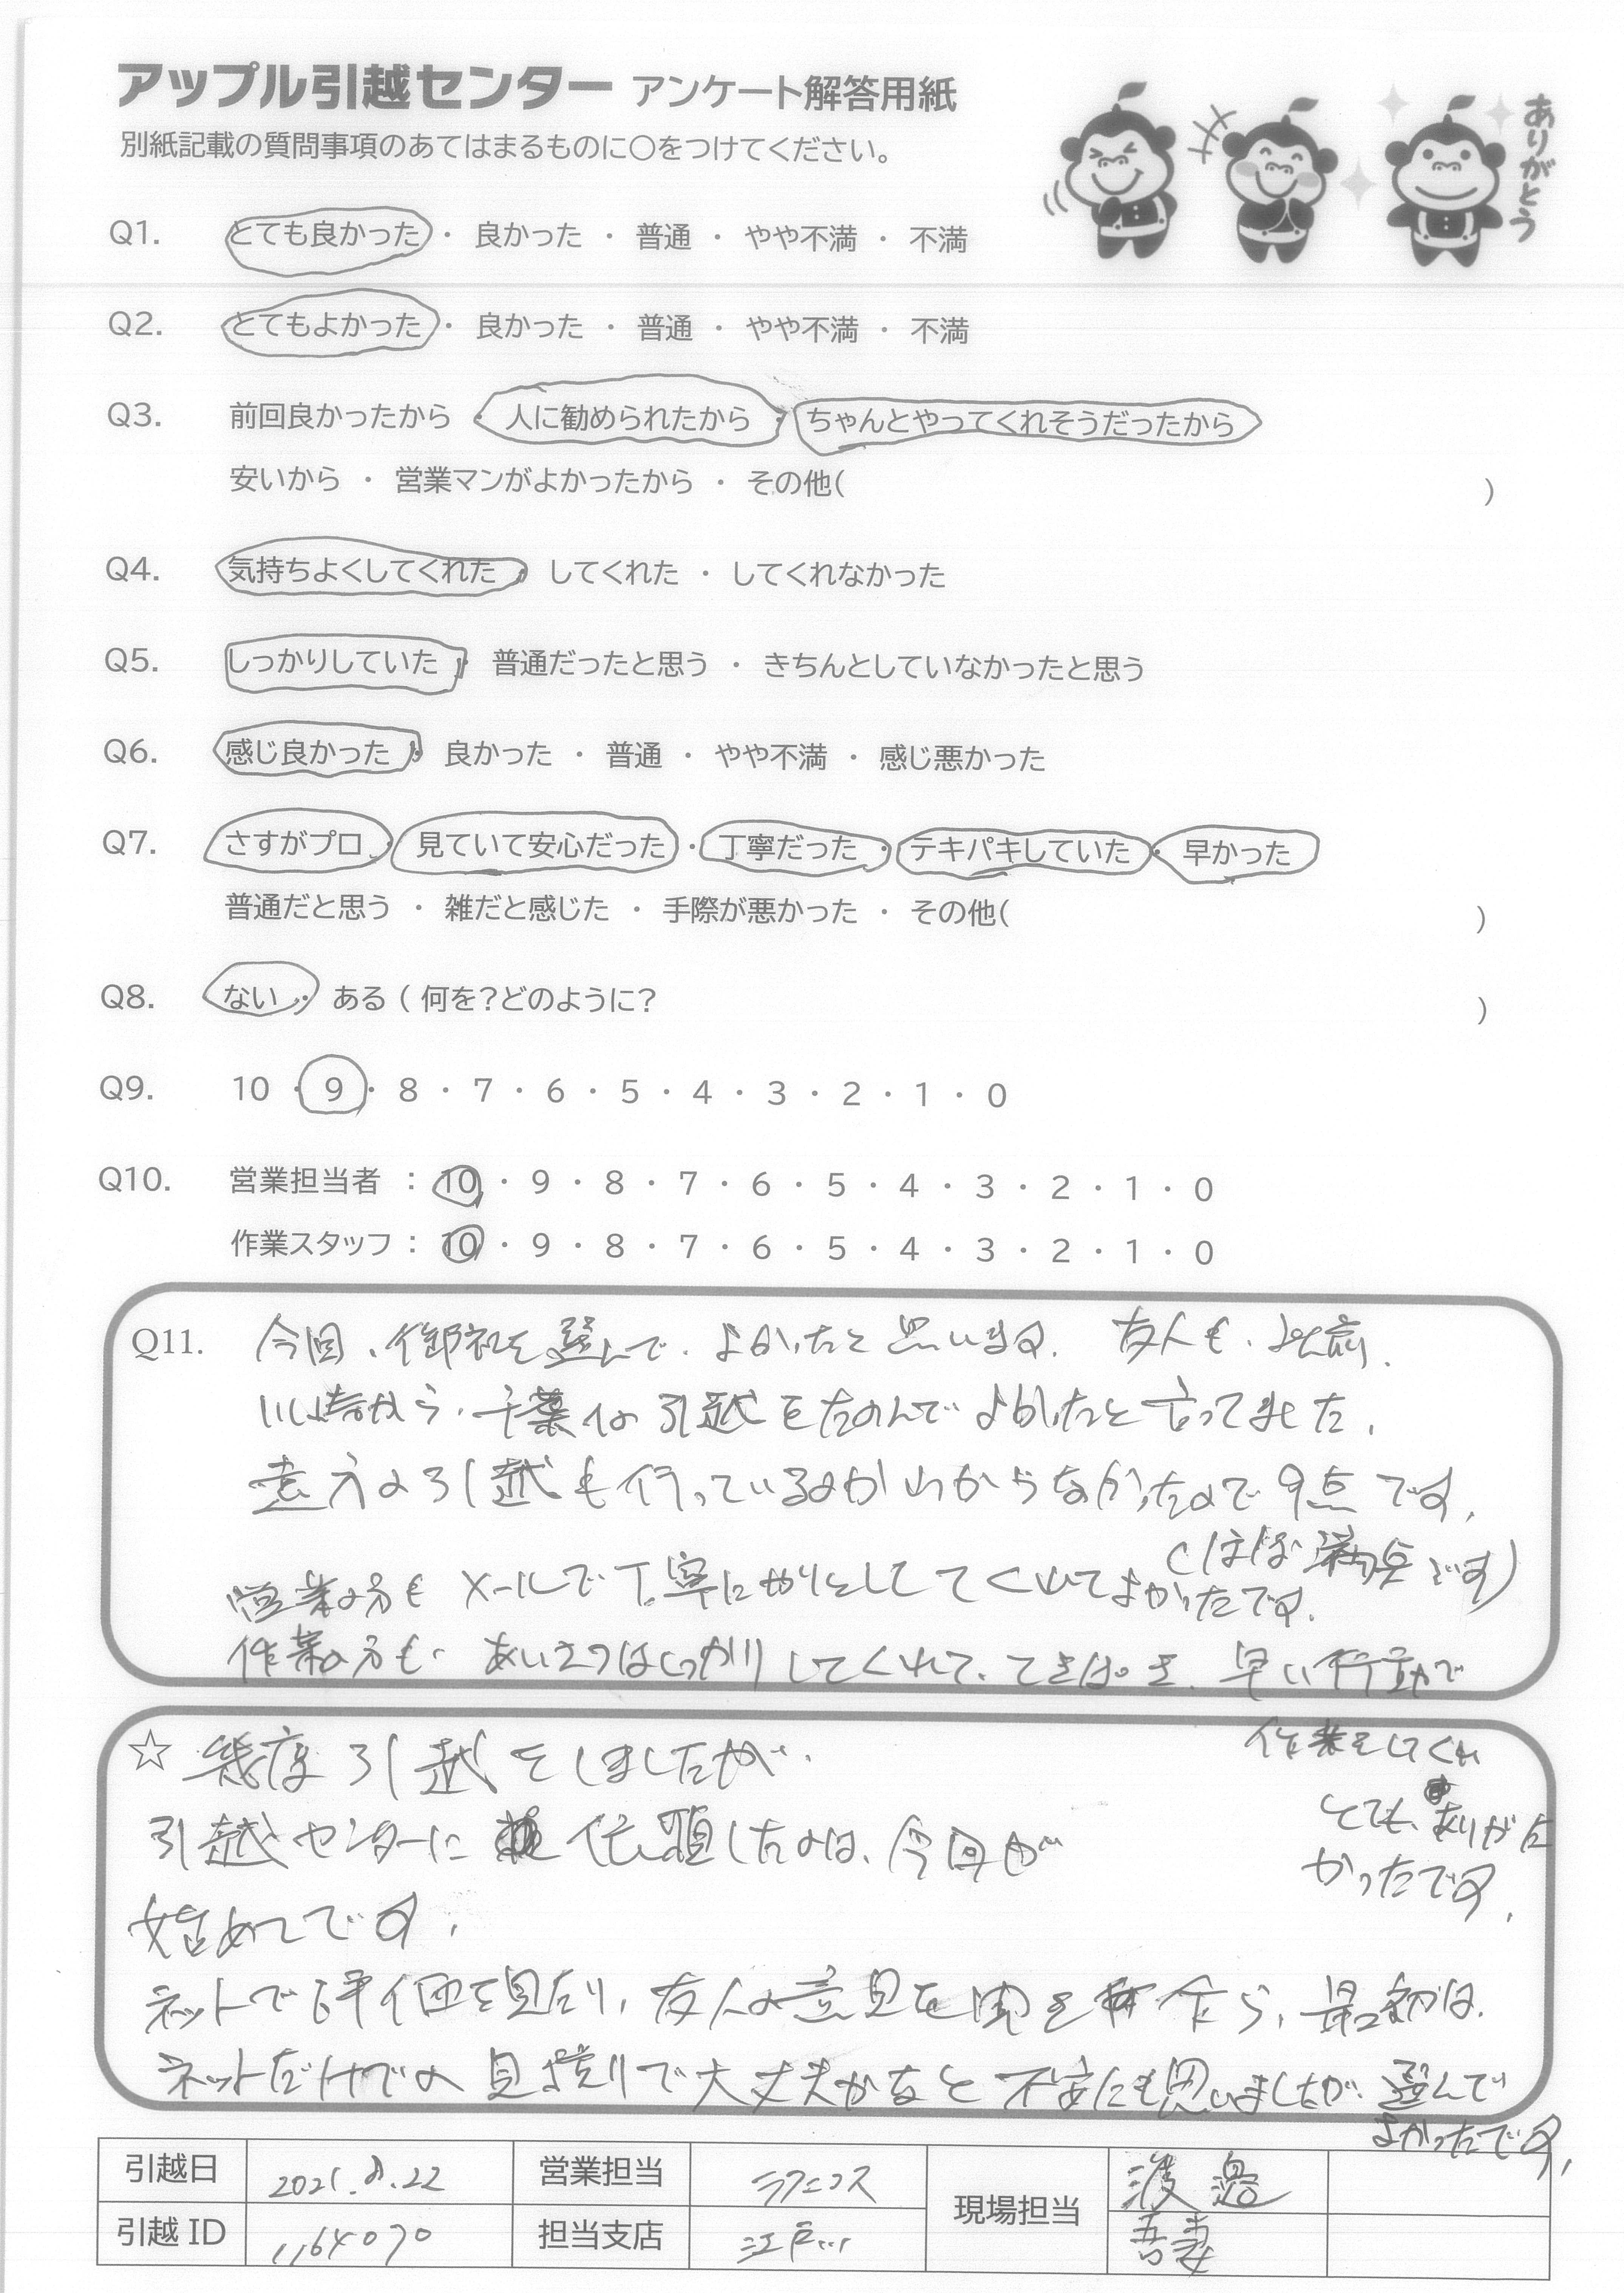 アップル引越センター アンケート解答用紙
別紙記載の質問事項のあてはまるものに○をつけてください。
ありがとう
Q1. とても良かった ・ 良かった ・ 普通 ・ やや不満 ・ 不満
Q2. とてもよかった ・ 良かった ・ 普通 ・ やや不満 ・ 不満
Q3. 前回良かったから ・ 人に勧められたから ・ ちゃんとやってくれそうだったから
安いから ・ 営業マンがよかったから ・ その他( )
Q4. 気持ちよくしてくれた ・ してくれた ・ してくれなかった
Q5. しっかりしていた ・ 普通だったと思う ・ きちんとしていなかったと思う
Q6. 感じ良かった ・ 良かった ・ 普通 ・ やや不満 ・ 感じ悪かった
Q7. さすがプロ ・ 見ていて安心だった ・ 丁寧だった ・ テキパキしていた ・ 早かった
普通だと思う ・ 雑だと感じた ・ 手際が悪かった ・ その他( )
Q8. ない ・ ある ( 何を?どのように? )
Q9. 10 ・ 9 ・ 8 ・ 7 ・ 6 ・ 5 ・ 4 ・ 3 ・ 2 ・ 1 ・ 0
Q10. 営業担当者 : 10 ・ 9 ・ 8 ・ 7 ・ 6 ・ 5 ・ 4 ・ 3 ・ 2 ・ 1 ・ 0
作業スタッフ : 10 ・ 9 ・ 8 ・ 7 ・ 6 ・ 5 ・ 4 ・ 3 ・ 2 ・ 1 ・ 0
Q11. 今回、御社を選んで、よかったと思います。友人も、以前、
千葉 引越をたのんでよかったと言ってました。
遠方の引越も行っているのかわからなかったので9点です。
(ほぼ満点です)
営業の方もメールで丁寧にやりとりしてくれてよかったです。
作業の方も、あいさつはしっかりしてくれて、てきぱき、早い行動で
作業をしてくれ
とても、ありがた
かったです。
☆ 幾度引越をしましたが、
引越センターに依頼したのは、今回が
始めてです。
ネットで評価を見たり、友人の意見を聞き 最初は、
ネットだけでの見積りで大丈夫かなと不安にも思いましたが、選んで
よかったです。
引越日 2021.8.22 営業担当 現場担当 渡邉
引越 ID 1164070 担当支店 江戸川 吾妻